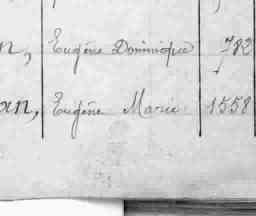 n, Eugène Dominique 782
an, Eugène Marie 1558